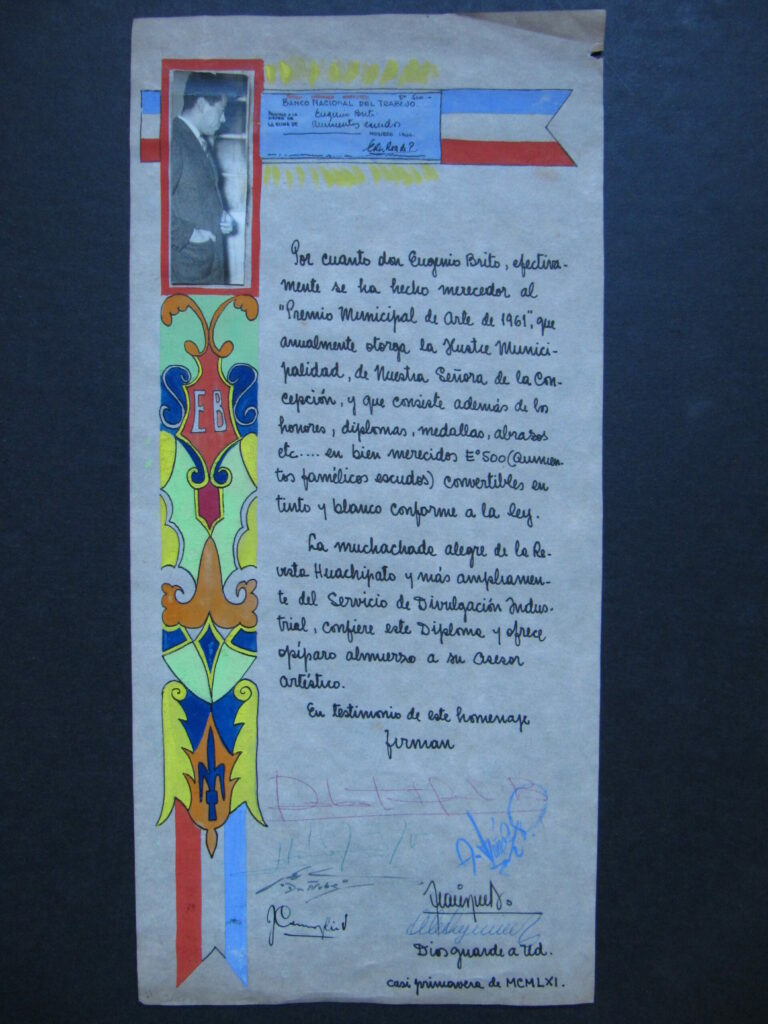 BANCO NACIONAL DEL TRABAJO.
Eugenio Brito
LA SUMA DE Quinientos escudos
EB
Por cuanto don Eugenio Brito, efectiva-
mente se ha hecho merecedor al
"Premio Municipal de Arte de 1961", que
anualmente otorga la Ilustre Munici-
palidad, de Nuestra Señora de la Con-
cepción, y que consiste además de los
honores, diplomas, medallas, abrazos
etc.... en bien merecidos E° 500 (Quinien-
tos famélicos escudos) convertibles en
tinto y blanco conforme a la ley.
La muchachada alegre de la Re-
vista Huachipato y más ampliamen-
te del Servicio de Divulgación Indus-
trial, confiere este Diploma y ofrece
opíparo almuerzo a su Asesor
Artístico.
En testimonio de este homenaje
firman
Dios guarde a Ud.
casi primavera de MCMLXI.